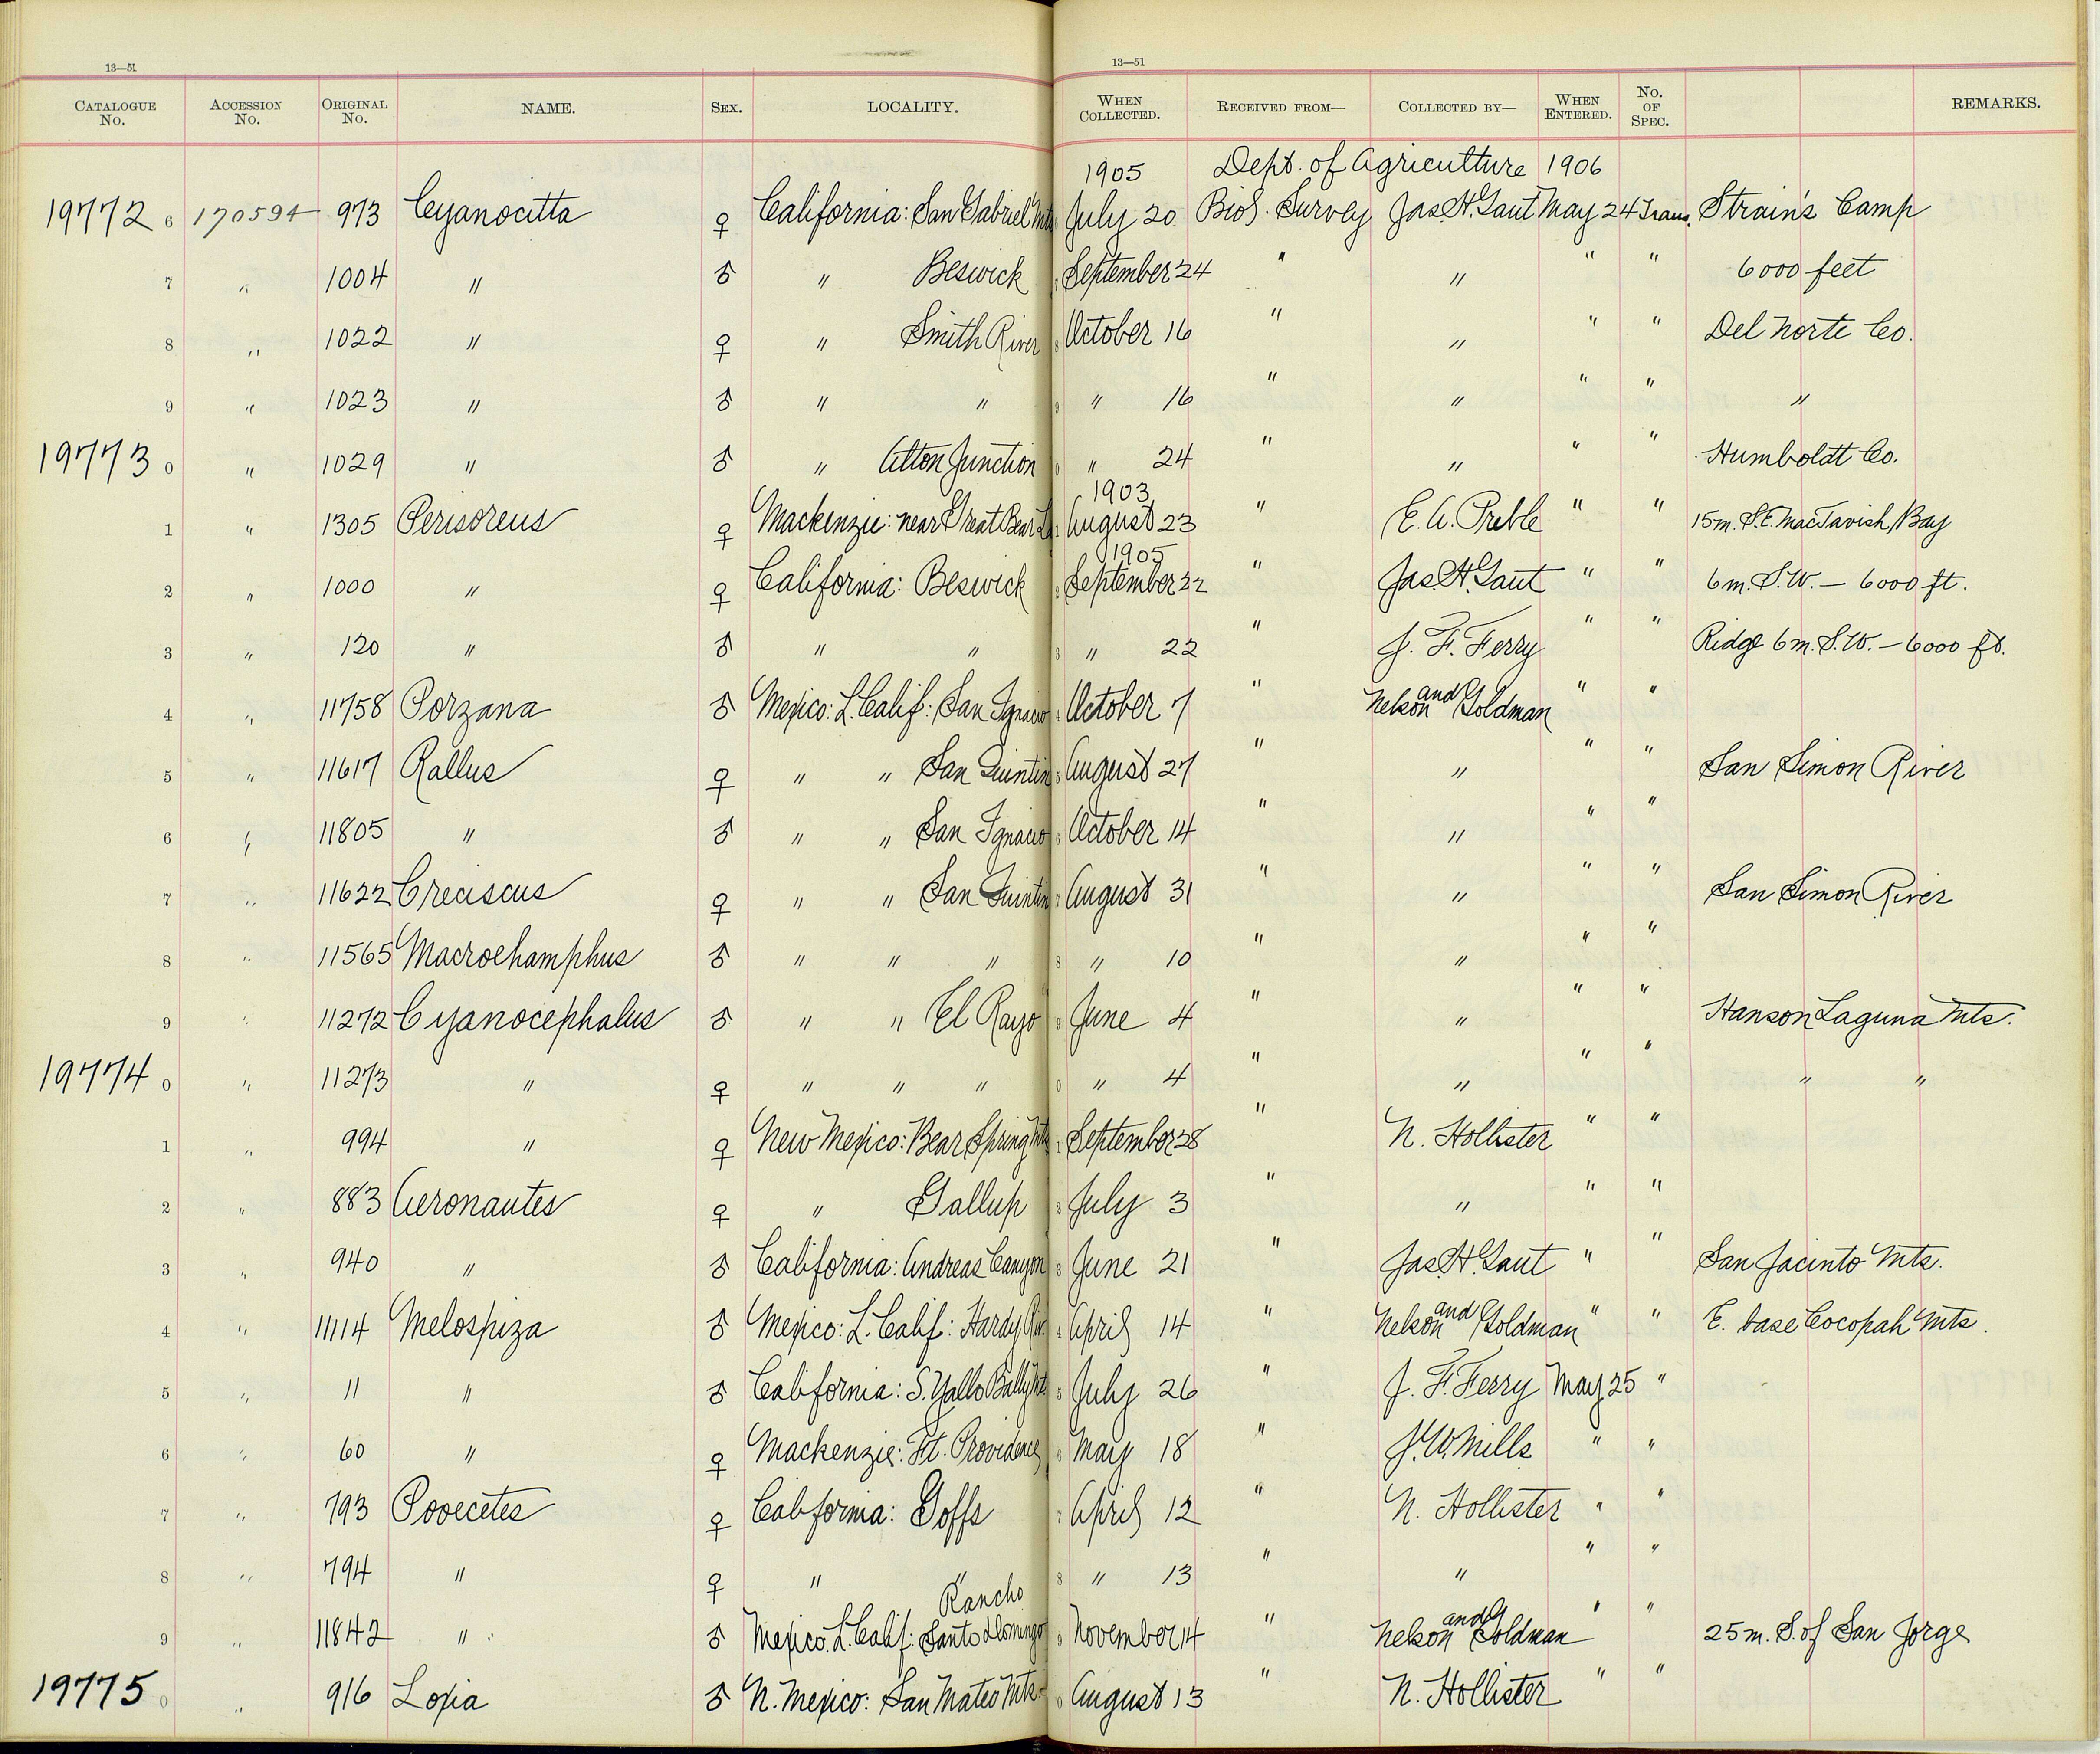 13—51 13—51
CATALOGUE No. ACCESSION No. ORIGINAL No. NAME. SEX. LOCALITY. WHEN COLLECTED. RECEIVED FROM— COLLECTED BY— WHEN ENTERED. No. OF SPEC. REMARKS.
1905 Dept. of Agriculture 1906
19772 6 170594 973 Cyanocitta ♀ California: San Gabriel Mts July 20 Biol. Survey Jas. H. Gaut May 24 Trans. Strain's Camp
7 " 1004 " ♂ " Beswick September 24 " " " " 6000 feet
8 " 1022 " ♀ " Smith River 8 October 16 " " " " Del Norte Co.
9 " 1023 " ♂ " " 9 " 16 " " " " "
19773 0 " 1029 " ♂ " Alton Junction 0 " 24 " " " " Humboldt Co.
1903
1 " 1305 Perisoreus ♀ Mackenzie: near Great Bear La August 23 " E. A. Preble " " 15 m. S.E. MacTavish Bay
1905
2 " 1000 " ♀ California: Beswick 2 September 22 " Jas. H. Gaut " " 6 m. S.W. — 6000 ft.
3 " 120 " ♂ " " 3 " 22 " J. F. Ferry " " Ridge 6 m. S.W. — 6000 ft.
4 " 11758 Porzana ♂ Mexico: L. Calif: San Ignacio October 7 " Nelson and Goldman " "
5 " 11617 Rallus ♀ " " San Quintin August 27 " " " " San Simon River
6 " 11805 " ♂ " " San Ignacio 6 October 14 " " " "
7 " 11622 Creciscus ♀ " " San Quintin August 31 " " " " San Simon River
8 " 11565 Macrorhamphus ♂ " " " 8 " 10 " " " "
9 " 11272 Cyanocephalus ♂ " " El Rayo 9 June 4 " " " " Hanson Laguna Mts.
19774 0 " 11273 " ♀ " " " 0 " 4 " " " " " "
1 " 994 " ♀ New Mexico: Bear Spring Mts September 28 " N. Hollister " "
2 " 883 Aeronautes ♀ " Gallup 2 July 3 " " " "
3 " 940 " ♂ California: Andreas Canyon 3 June 21 " Jas. H. Gaut " " San Jacinto Mts.
4 " 11114 Melospiza ♂ Mexico: L. Calif: Hardy Riv. 4 April 14 " Nelson and Goldman " " E. base Cocopah Mts.
5 " 11 " ♂ California: S. Yallo Bally Mt. 5 July 26 " J. F. Ferry May 25 "
6 " 60 " ♀ Mackenzie: Ft. Providence 6 May 18 " J. W. Mills " "
7 " 793 Pooecetes ♀ California: Goffs 7 April 12 " N. Hollister " "
8 " 794 " ♀ " " 8 " 13 " " " "
Rancho
9 " 11842 " ♂ Mexico: L. Calif: Santo Domingo 9 November 14 " Nelson and Goldman " " 25 m. S. of San Jorge
19775 0 " 916 Loxia ♂ N. Mexico: San Mateo Mts. 0 August 13 " N. Hollister " "